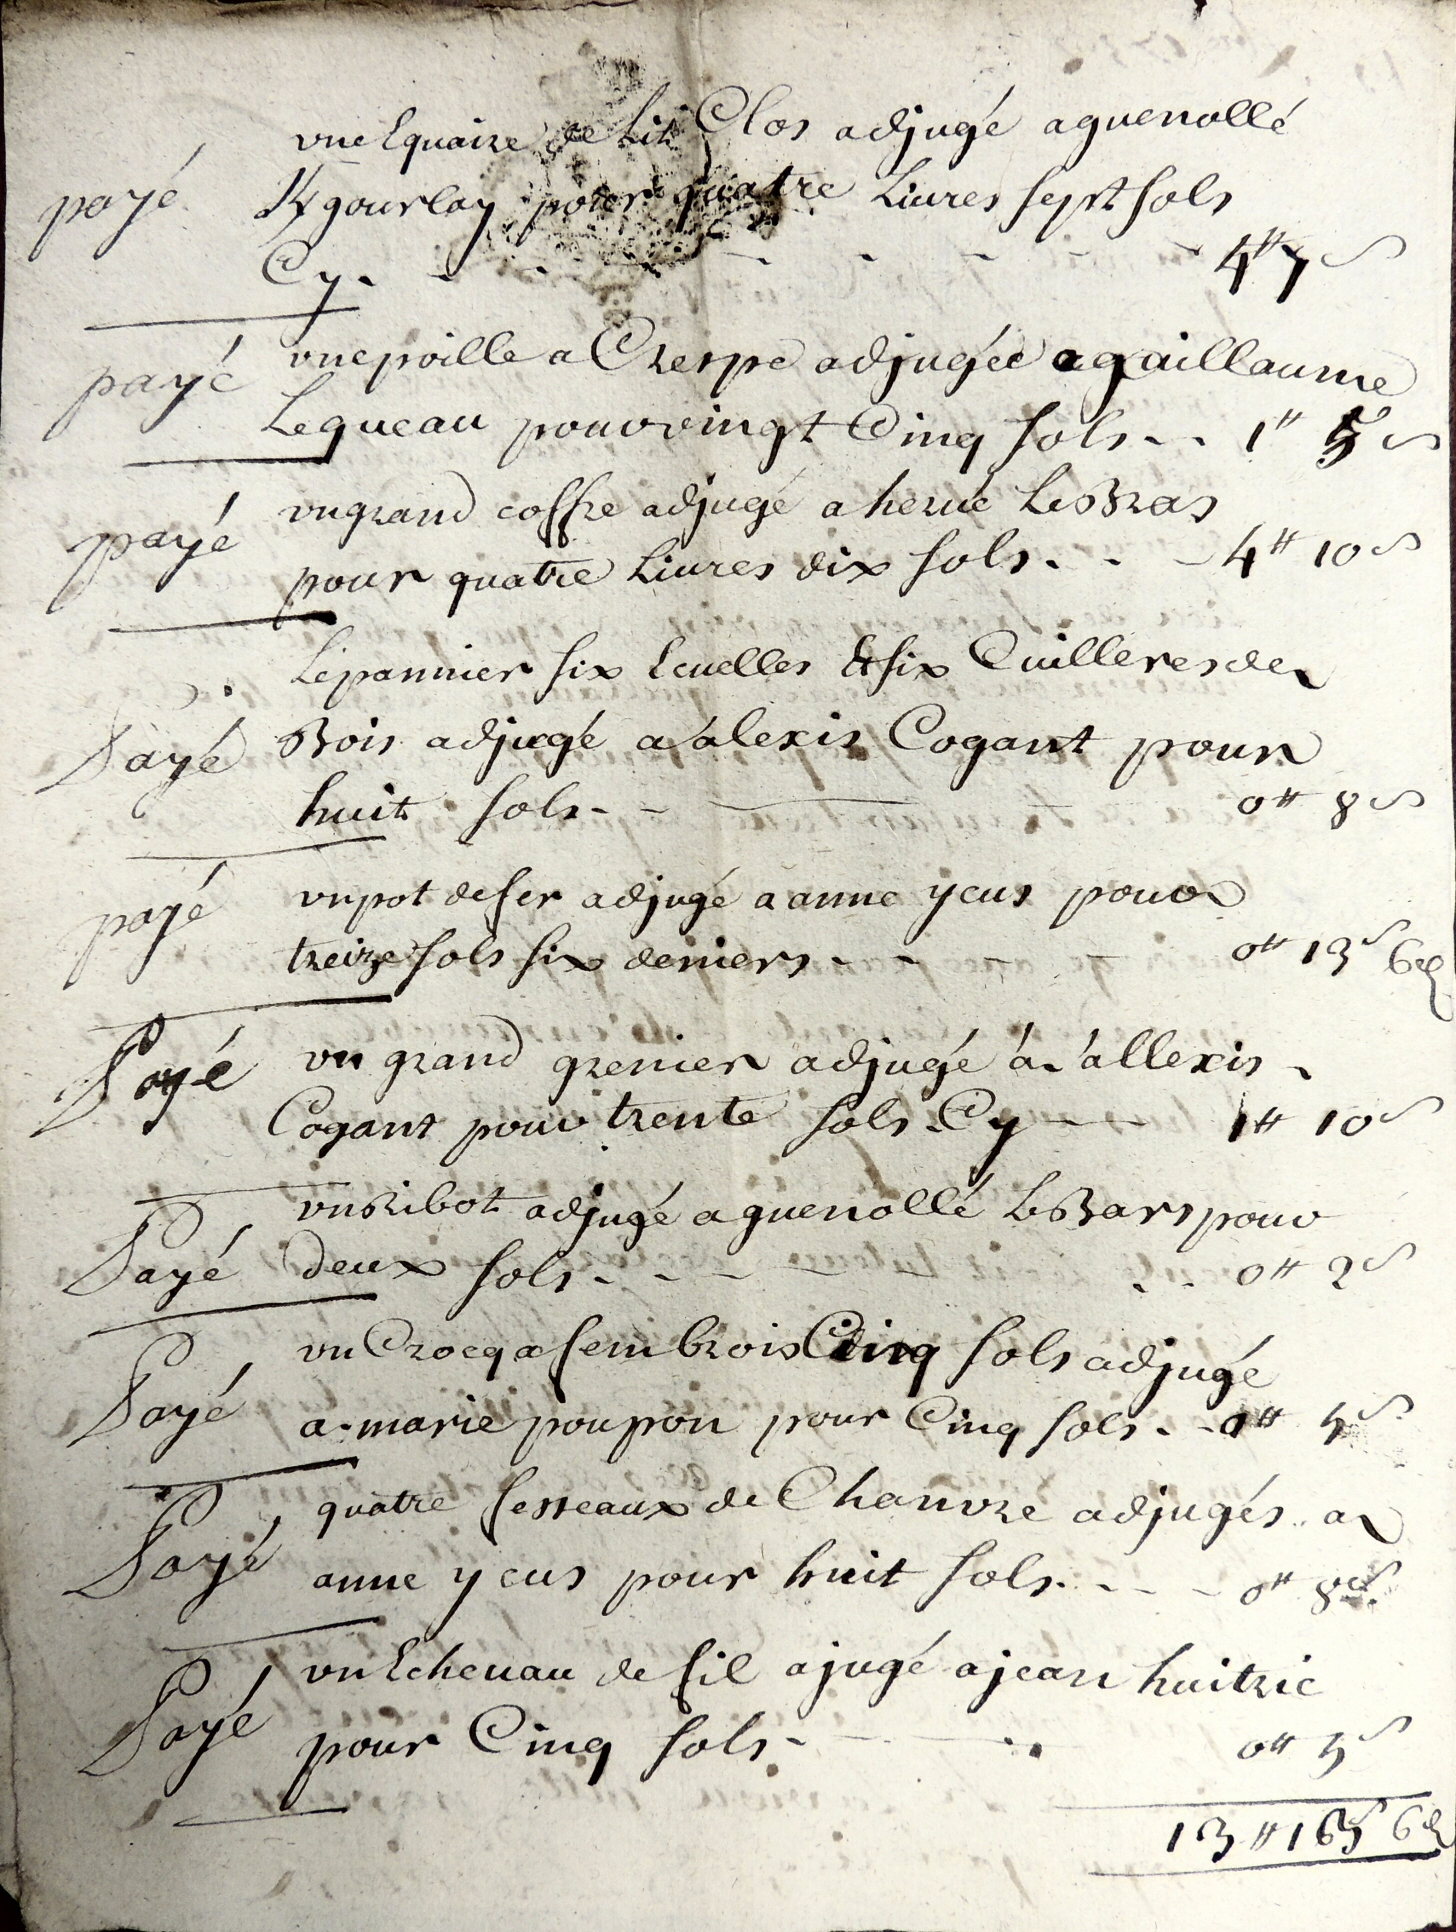 une Equaire de Lit Clos adjugé a guenollé
payé Kgourlay pour quatre Livres sept sols
Cy. - - - - - - - 4tt 7s
payé une poille a Crespe adjugée a guillaume
Lequeau pour vingt Cinq sols - - 1tt 5s
payé un grand coffre adjugé a hervé Le Bras
pour quatre Livres dix sols - - - 4tt 10s
Le pannier six Ecuelles Et six Cuilleres de
Payé Bois adjugé a alexis Cogant pour
huit sols - - 0tt 8s
payé un pot de fer adjugé a anne ycus pour
treize sols six deniers - - - - 0tt 13s 6d
Payé un grand grenier adjugé à allexis
Cogant pour trente sols Cy - - 1tt 10s
un Ribot adjugé a guenollé Le Bars pour
Payé deux sols - - - - - - - - 0tt 2s
un Crocq a fembrois Cinq sols adjugé
Payé a marie poupon pour Cinq sols - - 0tt 5s
quatre fesseaux de Chanvre adjugés a
Payé anne ycus pour huit sols - - - 0tt 8s
un Echevau de fil ajugé a jean huitric
Payé pour Cinq sols - - - 0tt 5s
13tt 16s 6d